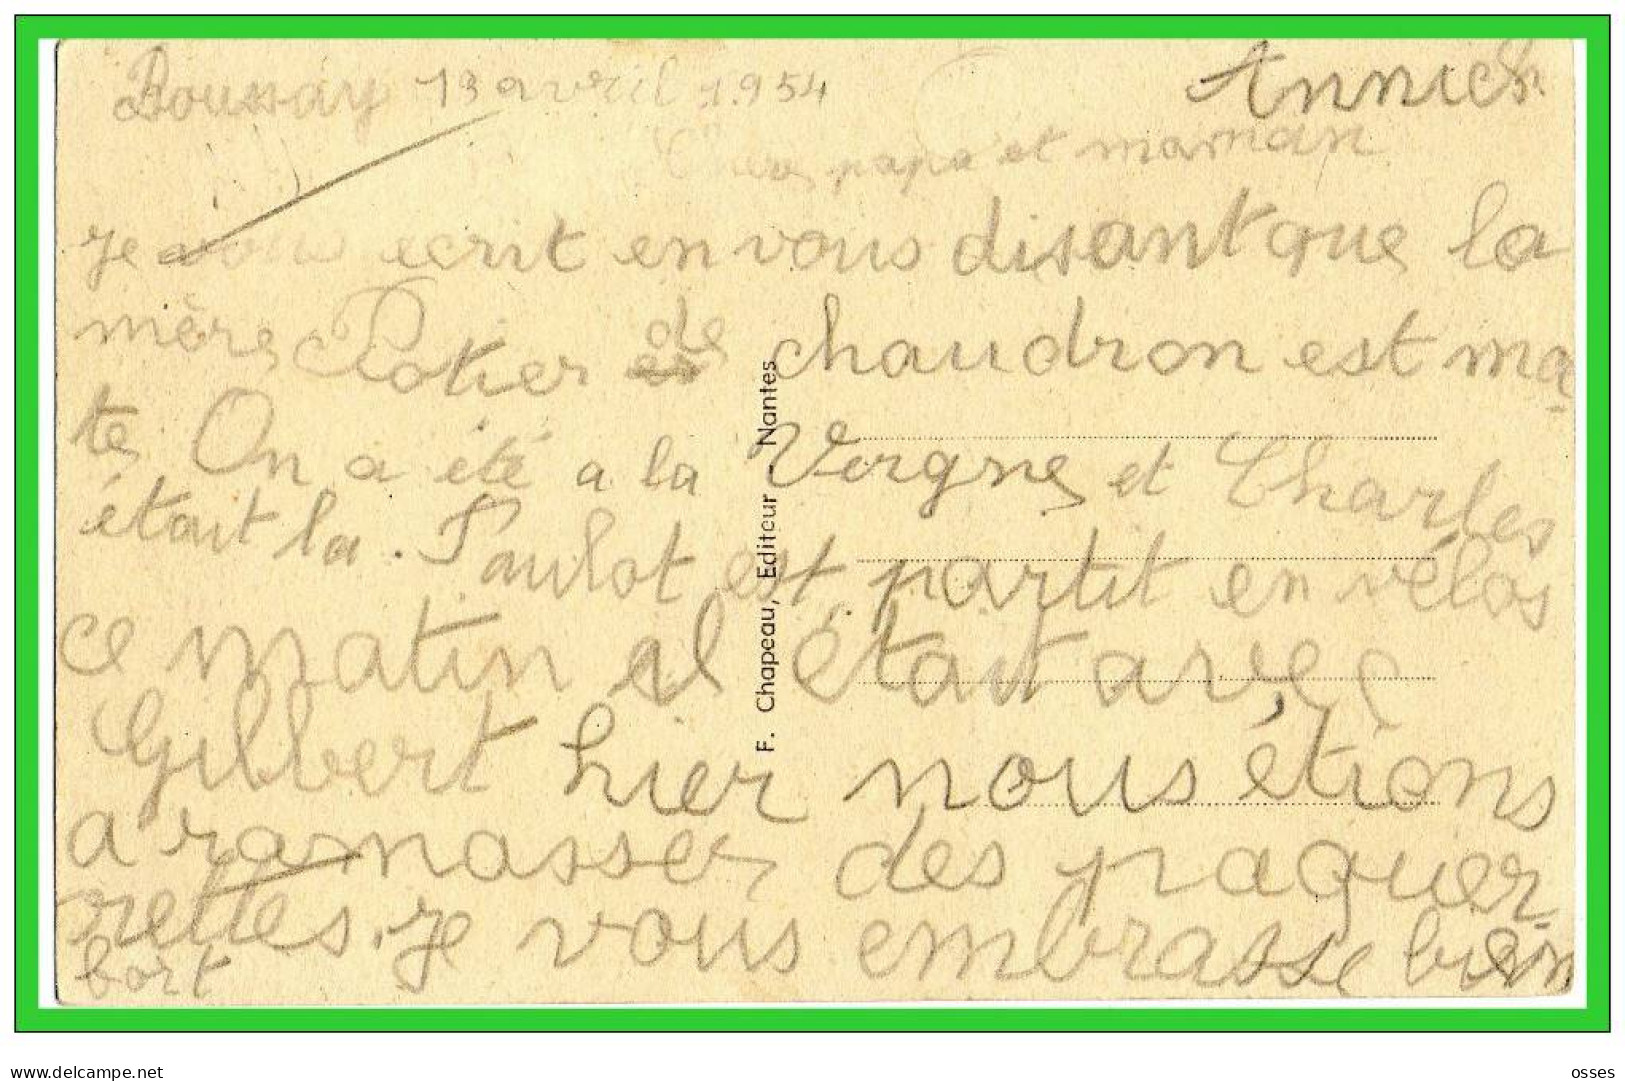 Boussay 13 avril 1954
Annick
Chers papa et maman
Je vous ecrit en vous disant que la
mère Potier de chaudron est ma
te. On a été a la Vergne et Charles
était la. Paulot est partit en vélos
ce matin il était avec
Gilbert hier nous étions
a ramasser des paquer
rettes. je vous embrasse bien
bort
F. Chapeau, Editeur - Nantes
www.delcampe.net
osses